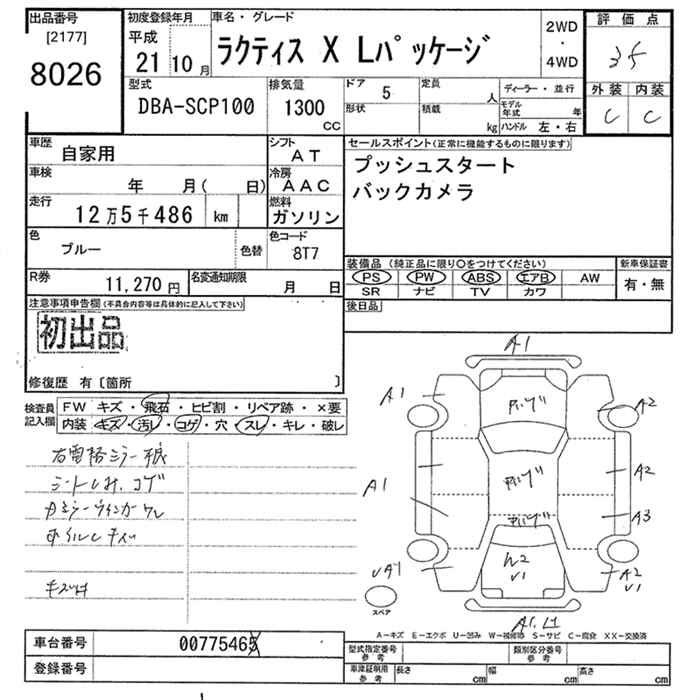 出品番号
[2177]
8026
初度登録年月
平成
21 10 月
車名・グレード
ラクティス X Lパッケージ
2WD
・
4WD
評価点
35
外装 内装
C C
型式
DBA-SCP100
排気量
1300
CC
ドア 5
形状
定員 人
積載 kg
ディーラー・並行
モデル年式 年
ハンドル 左・右
車歴
自家用
シフト
AT
車検
年 月( 日)
冷房
AAC
走行
12万5千486 km
燃料
ガソリン
色
ブルー
色替
色コード
8T7
R券
11,270 円
名変通知期限
月 日
セールスポイント(正常に機能するものに限ります)
プッシュスタート
バックカメラ
装備品 (純正品に限り○をつけてください)
PS PW ABS エアB AW
SR ナビ TV カワ
新車保証書
有・無
後日品
注意事項申告欄(不具合内容等は具体的に記入して下さい)
初出品
修復歴 有〔箇所 〕
検査員
記入欄
FW キズ・飛石・ヒビ割・リペア跡・×要
内装 キズ・汚レ・コゲ・穴・スレ・キレ・破レ
シートしみ、コゲ
A1
A1
A2
A1
A2
A3
A1
A2
V1
V1
スペア
A1
A-キズ E-エクボ U-凹み W-補修跡 S-サビ C-腐食 XX-交換済
車台番号
0077546
登録番号
型式指定番号
参考
類別区分番号
参考
車庫証明用
参考
長さ cm
幅 cm
高さ cm